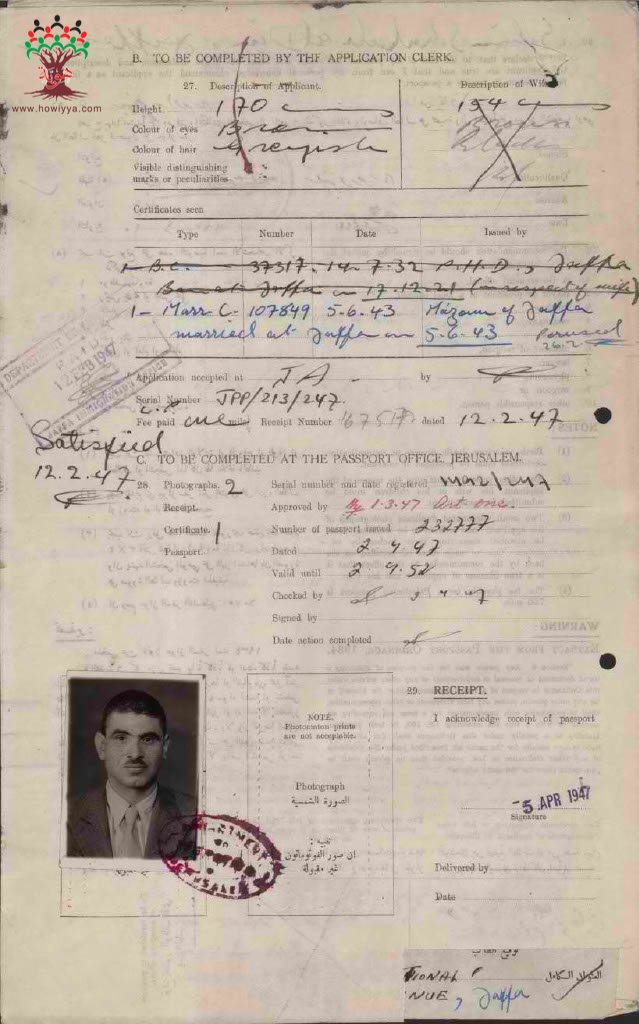 www.howiyya.com
B. TO BE COMPLETED BY THE APPLICATION CLERK.
27. Description of Applicant.
Description of Wife
Height 170 c
154 c
Colour of eyes Brown
Brown
Colour of hair Greyish
Visible distinguishing
marks or peculiarities
Certificates seen
Type Number Date Issued by
1- B.C. 37317. 14.7.32 P.H.D., Jaffa
Jaffa on 17.12.21 (in respect of wife)
1- Marr C. 107849 5-6.43 Mazoun of Jaffa
married at Jaffa on 5-6.43 Perused
12 FEB 1947
Application accepted at JA. by
Serial Number JPP/213/247.
Fee paid mils Receipt Number 67517 dated 12.2.47
Satisfied
12.2.47
C. TO BE COMPLETED AT THE PASSPORT OFFICE, JERUSALEM.
28. Photographs. 2 Serial number and date registered
Receipt. Approved by 1.3.47
Certificate. 1 Number of passport issued 232777
Passport. Dated 2 4 47
Valid until 2 4.52
Checked by
Signed by
Date action completed
NOTE.
Photomaton prints
are not acceptable.
Photograph
الصورة الشمسية
تنبيه :
ان صور الفوتوماتون
غير مقبولة
29. RECEIPT.
I acknowledge receipt of passport
-5 APR 1947
Signature
Delivered by
Date
توقيع الطالب
TIONAL
NUE, Jaffa